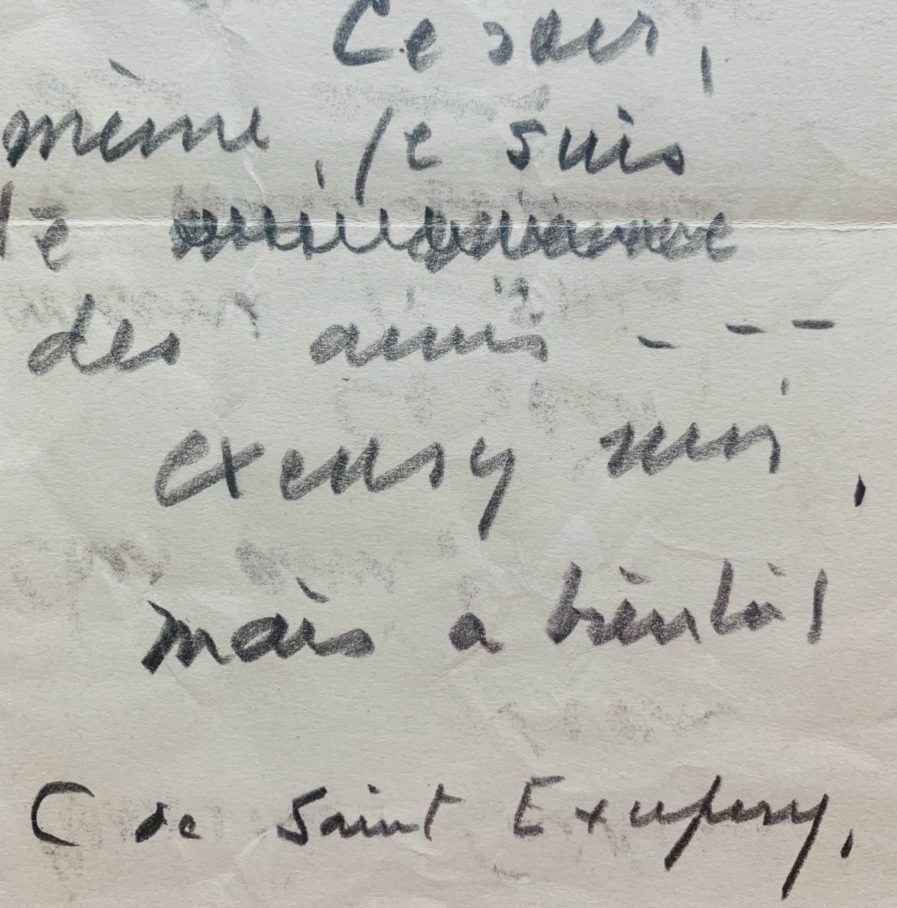 Ce soir,
même, je suis
le
des amis ---
excusez moi,
mais a bientôt
C de Saint Exupery.